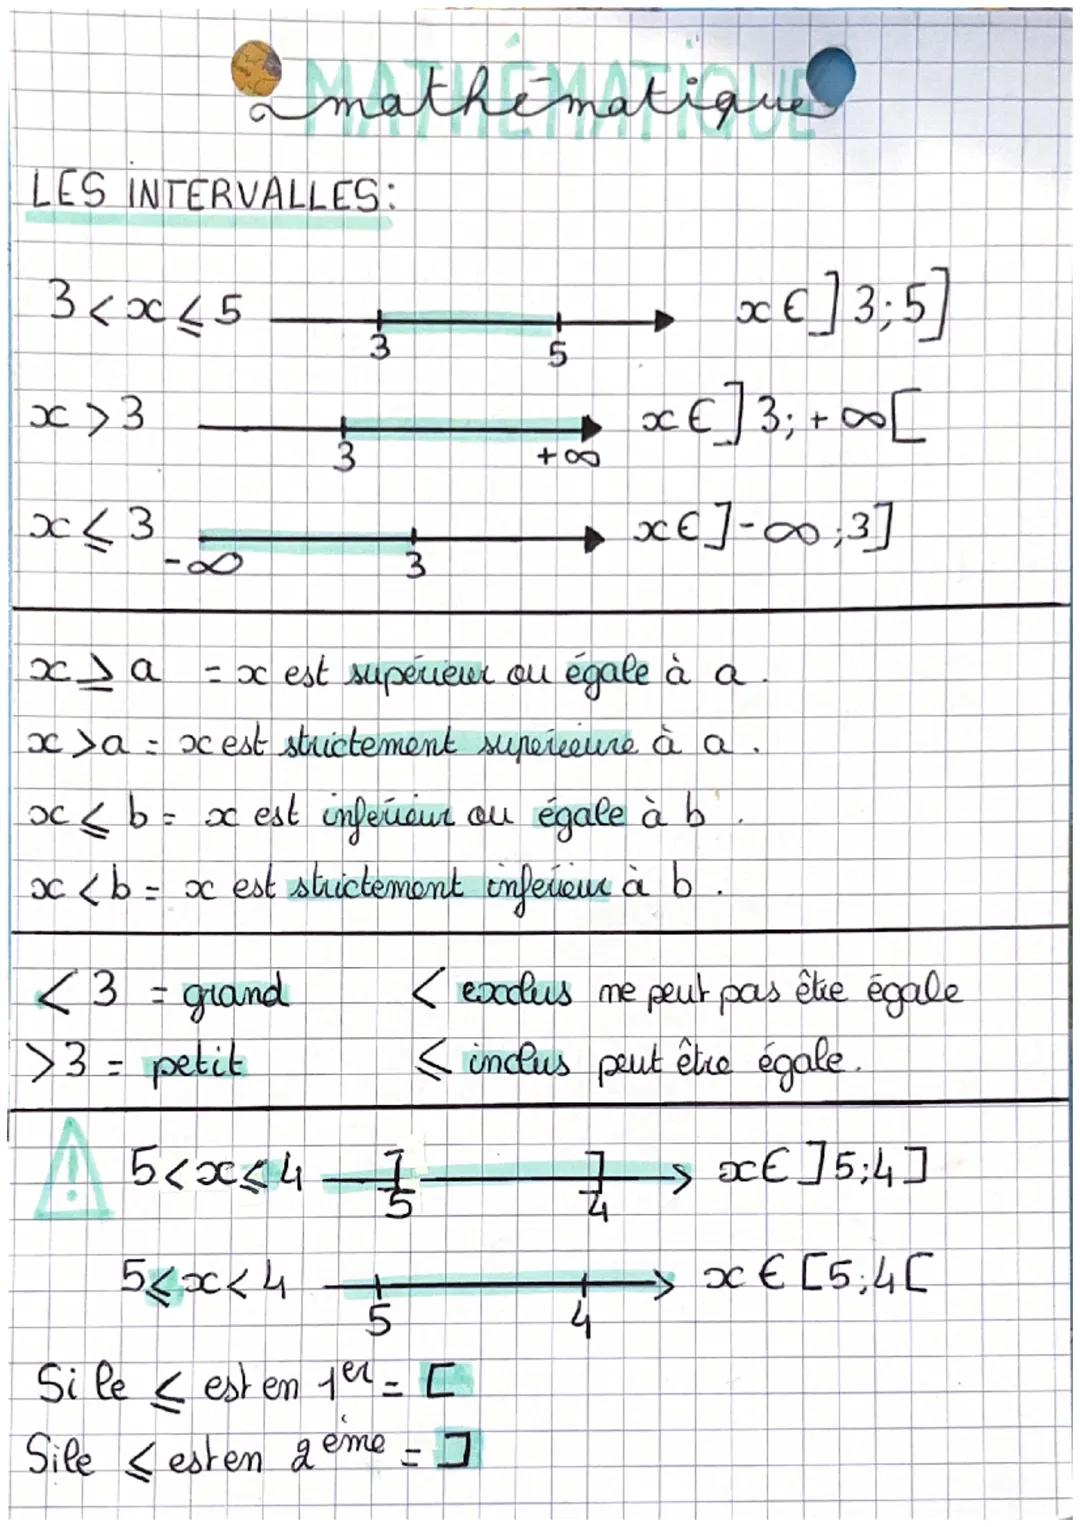 MATHÉMATIQUE
mathématique
LES INTERVALLES:
3 < x ⩽ 5 3 5 x ∈ ] 3 ; 5 ]
x > 3 3 +∞ x ∈ ] 3 ; + ∞ [
x ⩽ 3 -∞ 3 x ∈ ] - ∞ ; 3 ]
x ⩾ a = x est supérieur ou égale à a.
x > a = x est strictement superieure à a.
x ⩽ b = x est inférieur ou égale à b.
x < b = x est strictement inferieur à b.
< 3 = grand < exclus ne peut pas être égale
> 3 = petit ⩽ inclus peut être égale.
! 5 < x ⩽ 4 ] 5 ] 4 x ∈ ] 5 ; 4 ]
5 ⩽ x < 4 5 4 x ∈ [ 5 ; 4 [
Si le ⩽ est en 1er = [
Si le ⩽ est en 2ème = ]